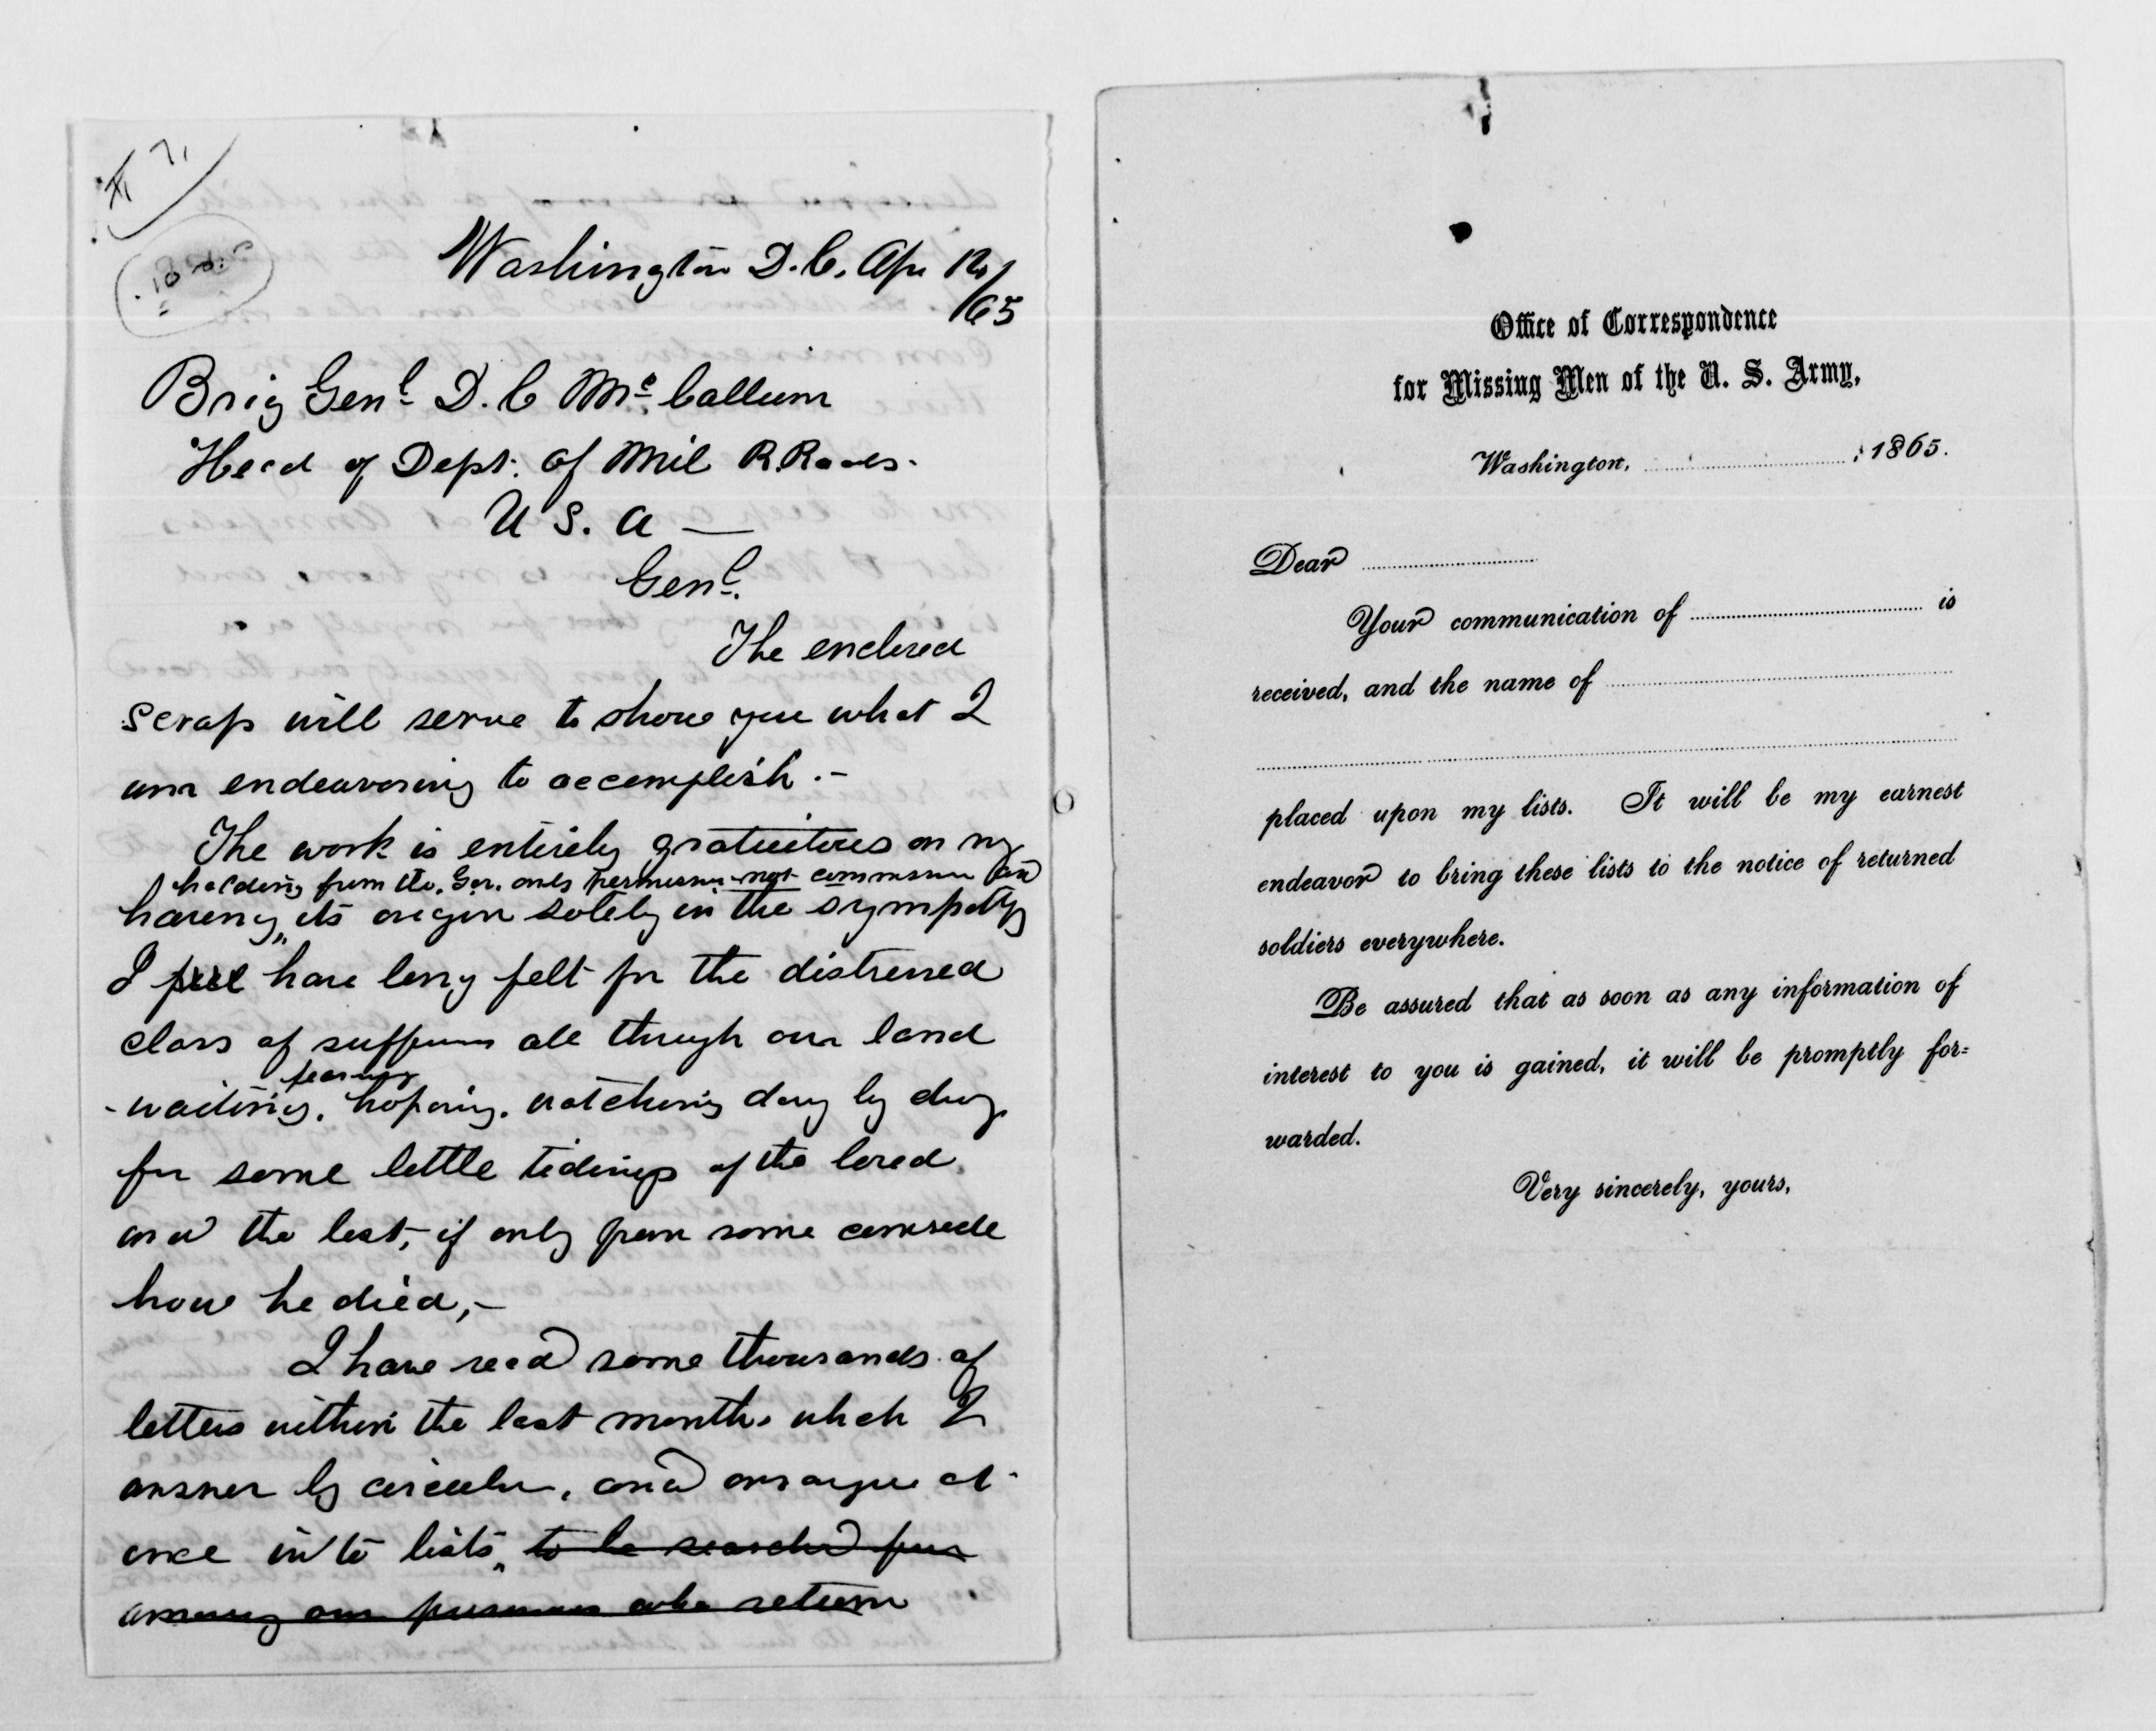 Washington D.C. Apr 12
/65
Brig Genl. D. C McCallum
Head of Dept. of Mil R. Roads.
U S. A —
Genl.
The enclosed
scraps will serve to show you what I
am endeavoring to accomplish.-
The work is entirely gratuitous on my
holding from the Gov. only permission not commission and
having „ its origin solely in the sympathy
I feel have long felt for the distressed
class of sufferers all through our land
fearing
- waiting, hoping, watching day by day
for some little tidings of the loved
and the lost, if only from some comrade
how he died,-
I have read some thousands of
letters within the last month, which I
answer by circular, and arrange at
once into lists „ to be searched for
among our prisoners who return
Office of Correspondence
for Missing Men of the U. S. Army,
Washington, , 1865.
Dear
Your communication of is
received, and the name of
placed upon my lists. It will be my earnest
endeavor to bring these lists to the notice of returned
soldiers everywhere.
Be assured that as soon as any information of
interest to you is gained, it will be promptly for=
warded.
Very sincerely, yours,